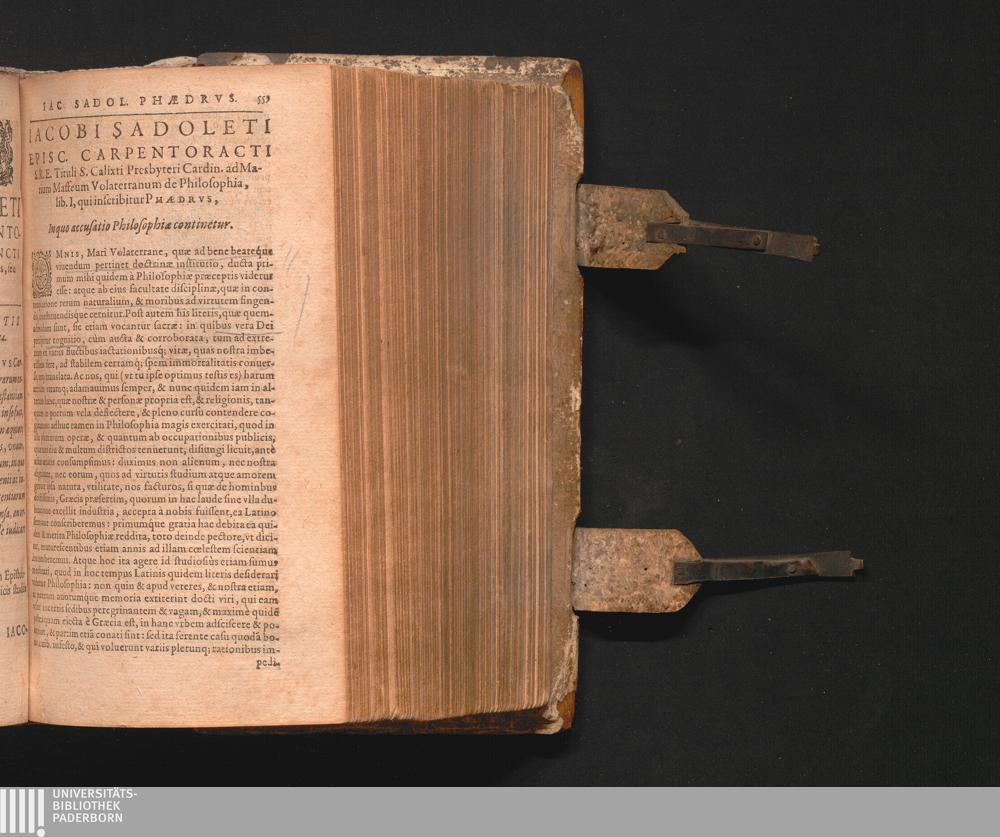 IAC. SADOL. PHÆDRVS. 559
IACOBI SADOLETI
EPISC. CARPENTORACTI
S.R.E. Tituli S. Calixti Presbyteri Cardin. ad Ma-
rium Maffeum Volaterranum de Philosophia,
lib. I, qui inscribitur PHÆDRVS,
In quo accusatio Philosophiæ continetur.
OMNIS, Mari Volaterrane, quæ ad bene beateque
viuendum pertinet doctrinæ institutio, ducta pri-
mum mihi quidem à Philosophiæ præceptis videtur
esse: atque ab eius facultate disciplinæ, quæ in con-
rerum naturalium, & moribus ad virtutem fingen-
dis, constituendisque cernitur. Post autem his literis, quæ quem-
admodum sunt, sic etiam vocantur sacræ: in quibus vera Dei
percipitur cognitio, cùm aucta & corroborata, tum ad extre-
mum ex variis fluctibus iactationibusq; vitæ, quas nostra imbe-
cillitas fert, ad stabilem certamq; spem immortalitatis conuer-
sa, translata. Ac nos, qui (vt tu ipse optimus testis es) harum
artium vtramq; adamauimus semper, & nunc quidem iam in al-
teram hanc, quæ nostræ & personæ propria est, & religionis, tan-
quam in portum vela deflectere, & pleno cursu contendere co-
adhuc tamen in Philosophia magis exercitati, quod in
illa plurimum operæ, & quantum ab occupationibus publicis,
quæ nos diu & multum districtos tenuerunt, disiungi licuit, antè
actæ ætatis consumpsimus: duximus non alienum, nec nostra
dignitate, nec eorum, quos ad virtutis studium atque amorem
ipsa natura, vtilitate, nos facturos, si quæ de hominibus
doctissimis, Græcis præsertim, quorum in hac laude sine vlla du-
bitatione excellit industria, accepta à nobis fuissent, ea Latino
sermone conscriberemus: primumque gratia hac debita ea qui-
dem & merita Philosophiæ reddita, toto deinde pectore, vt dici-
tur, maturescentibus etiam annis ad illam cœlestem scientiam
incumberemus. Atque hoc ita agere id studiosiùs etiam sumus
meditati, quod in hoc tempus Latinis quidem literis desiderari
videtur Philosophia: non quin & apud veteres, & nostra etiam,
ac patrum auorumque memoria extiterint docti viri, qui eam
incertis sedibus peregrinantem & vagam, & maximè quidē
postea quam eiecta è Græcia est, in hanc vrbem adsciscere & po-
& partim etiā conati sint: sed ita ferente casu quodā bo-
nis infesto, & qui voluerunt variis plerunq; rationibus im-
pedi-
IACO-
UNIVERSITÄTS-
BIBLIOTHEK
PADERBORN